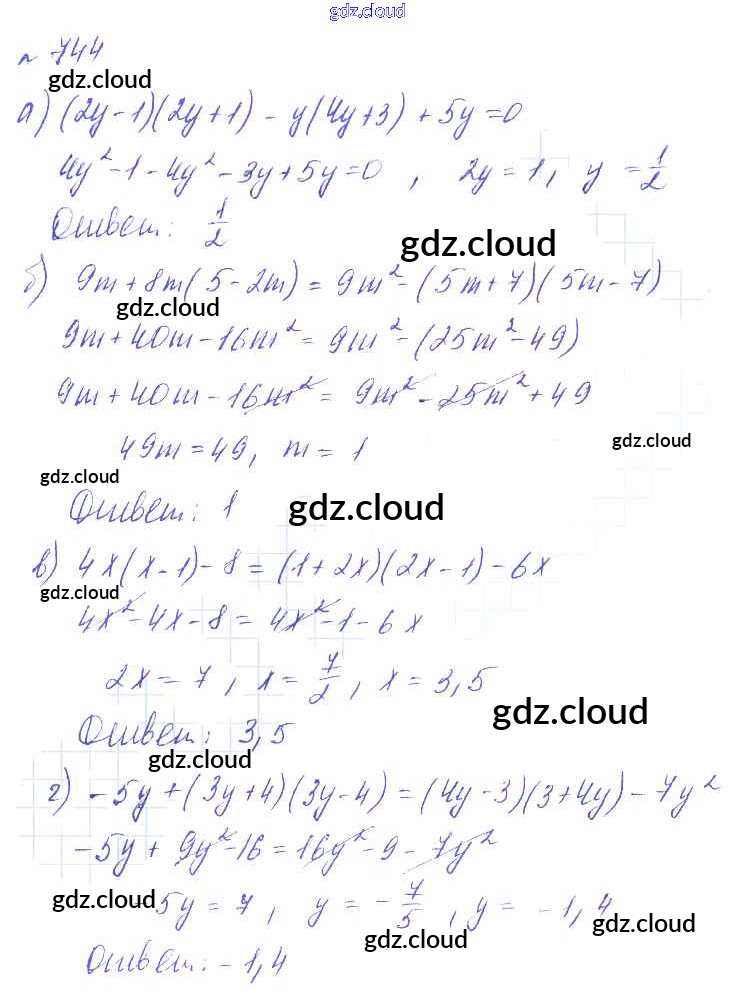 gdz.cloud
№ 744
gdz.cloud
а) (2y-1)(2y+1) - y(4y+3) + 5y = 0
4y² - 1 - 4y² - 3y + 5y = 0 , 2y = 1, y = 1/2
Ответ: 1/2
gdz.cloud
б) 9m + 8m(5 - 2m) = 9m² - (5m+7)(5m-7)
gdz.cloud
9m + 40m - 16m² = 9m² - (25m² - 49)
9m + 40m - 16m² = 9m² - 25m² + 49
49m = 49, m = 1
gdz.cloud
gdz.cloud
Ответ: 1
gdz.cloud
в) 4x(x-1) - 8 = (1+2x)(2x-1) - 6x
gdz.cloud
4x² - 4x - 8 = 4x² - 1 - 6x
2x = 7, x = 7/2, x = 3,5
gdz.cloud
Ответ: 3,5
gdz.cloud
г) -5y + (3y+4)(3y-4) = (4y-3)(3+4y) - 7y²
-5y + 9y² - 16 = 16y² - 9 - 7y²
gdz.cloud
5y = 7, y = - 7/5, y = -1,4
gdz.cloud
gdz.cloud
Ответ: -1,4